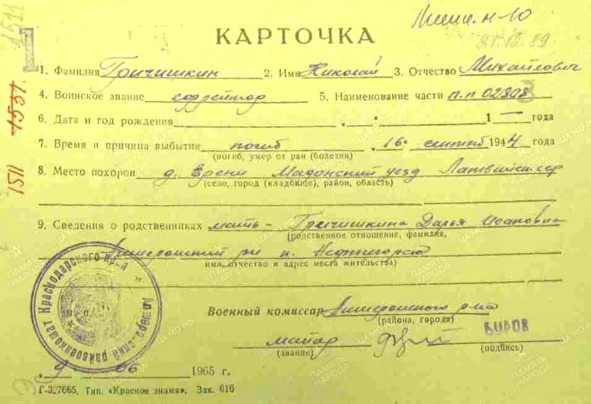 КАРТОЧКА
1. Фамилия Гричишкин 2. Имя Николай 3. Отчество Михайлович
4. Воинское звание ефрейтор 5. Наименование части п.п 02808
6. Дата и год рождения 1 — года
7. Время и причина выбытия погиб 16 сентяб 1944 года
(погиб, умер от ран (болезни)
8. Место похорон д. Ерени Мадонский уезд Латвийск. сср
(село, город (кладбище), район, область)
9. Сведения о родственниках мать - Гричишкина Дарья Исаковна
(родственное отношение, фамилия,
п. Нефтегорск
имя, отчество и адрес места жительства)
Военный комиссар
(района, города)
майор БИРОВ
(звание) (подпись)
Краснодарского края
9 06 1965 г.
Г-327665, Тип. «Красное знамя», Зак. 616